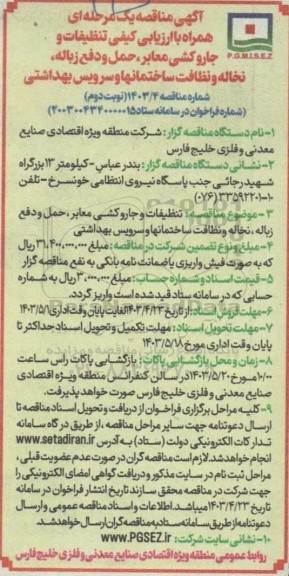 آگهی مناقصه یک مرحله ای
همراه با ارزیابی کیفی تنظیفات و
جاروکشی معابر، حمل و دفع زباله،
نخاله و نظافت ساختمانها و سرویس بهداشتی
P.G.M.I.S.E.Z
شماره مناقصه ۱۴۰۳/۴ (نوبت دوم)
(شماره فراخوان در سامانه ستاد ۲۰۰۳۰۰۴۳۴۰۰۰۰۰۱۵)
۱- نام دستگاه مناقصه گزار: شرکت منطقه ویژه اقتصادی صنایع
معدنی و فلزی خلیج فارس
۲- نشانی دستگاه مناقصه گزار: بندرعباس- کیلومتر ۱۳ بزرگراه
شهید رجائی جنب پاسگاه نیروی انتظامی خونسرخ - تلفن
۱۰-۳۳۵۹۲۲۰۱ (۰۷۶)
۳- موضوع مناقصه: تنظیفات و جاروکشی معابر، حمل و دفع
زباله، نخاله و نظافت ساختمانها و سرویس بهداشتی
۴- مبلغ و نوع تضمین شرکت در مناقصه: مبلغ ۳۱,۴۰۰,۰۰۰,۰۰۰ ریال
که به صورت فیش واریزی یا ضمانت نامه بانکی به نفع مناقصه گزار
۵- قیمت اسناد و شماره حساب: مبلغ ۳,۰۰۰,۰۰۰ ریال به شماره
حسابی که در سامانه ستاد قید شده است واریز گردد.
۶- مهلت فروش اسناد: از تاریخ ۱۴۰۳/۴/۲۳ لغایت پایان وقت اداری ۱۴۰۳/۵/۱
۷- مهلت تحویل اسناد: مهلت تکمیل و تحویل اسناد حداکثر تا
پایان وقت اداری مورخ ۱۴۰۳/۵/۱۸
۸- زمان و محل بازگشایی پاکات: بازگشایی پاکات راس ساعت
۱۰/۰۰ مورخ ۱۴۰۳/۵/۲۰ در سالن کنفرانس منطقه ویژه اقتصادی
صنایع معدنی و فلزی خلیج فارس صورت خواهد پذیرفت.
۹- کلیه مراحل برگزاری فراخوان از دریافت و تحویل اسناد مناقصه تا
ارسال دعوتنامه جهت سایر مراحل مناقصه، از طریق درگاه سامانه
تدارکات الکترونیکی دولت (ستاد) به آدرس www.setadiran.ir
انجام خواهد شد. لازم است مناقصه گران در صورت عدم عضویت قبلی،
مراحل ثبت نام در سایت مذکور و دریافت گواهی امضای الکترونیکی را
جهت شرکت در مناقصه محقق سازند تاریخ انتشار فراخوان در سامانه
تاریخ ۱۴۰۳/۴/۲۳ میباشد. اطلاعات و اسناد مناقصه عمومی و ارسال
دعوتنامه از طریق سامانه ستاد به مناقصه گران ارسال خواهد شد.
۱۰- نشانی سایت شرکت: www.PGSEZ.ir
روابط عمومی منطقه ویژه اقتصادی صنایع معدنی و فلزی خلیج فارس